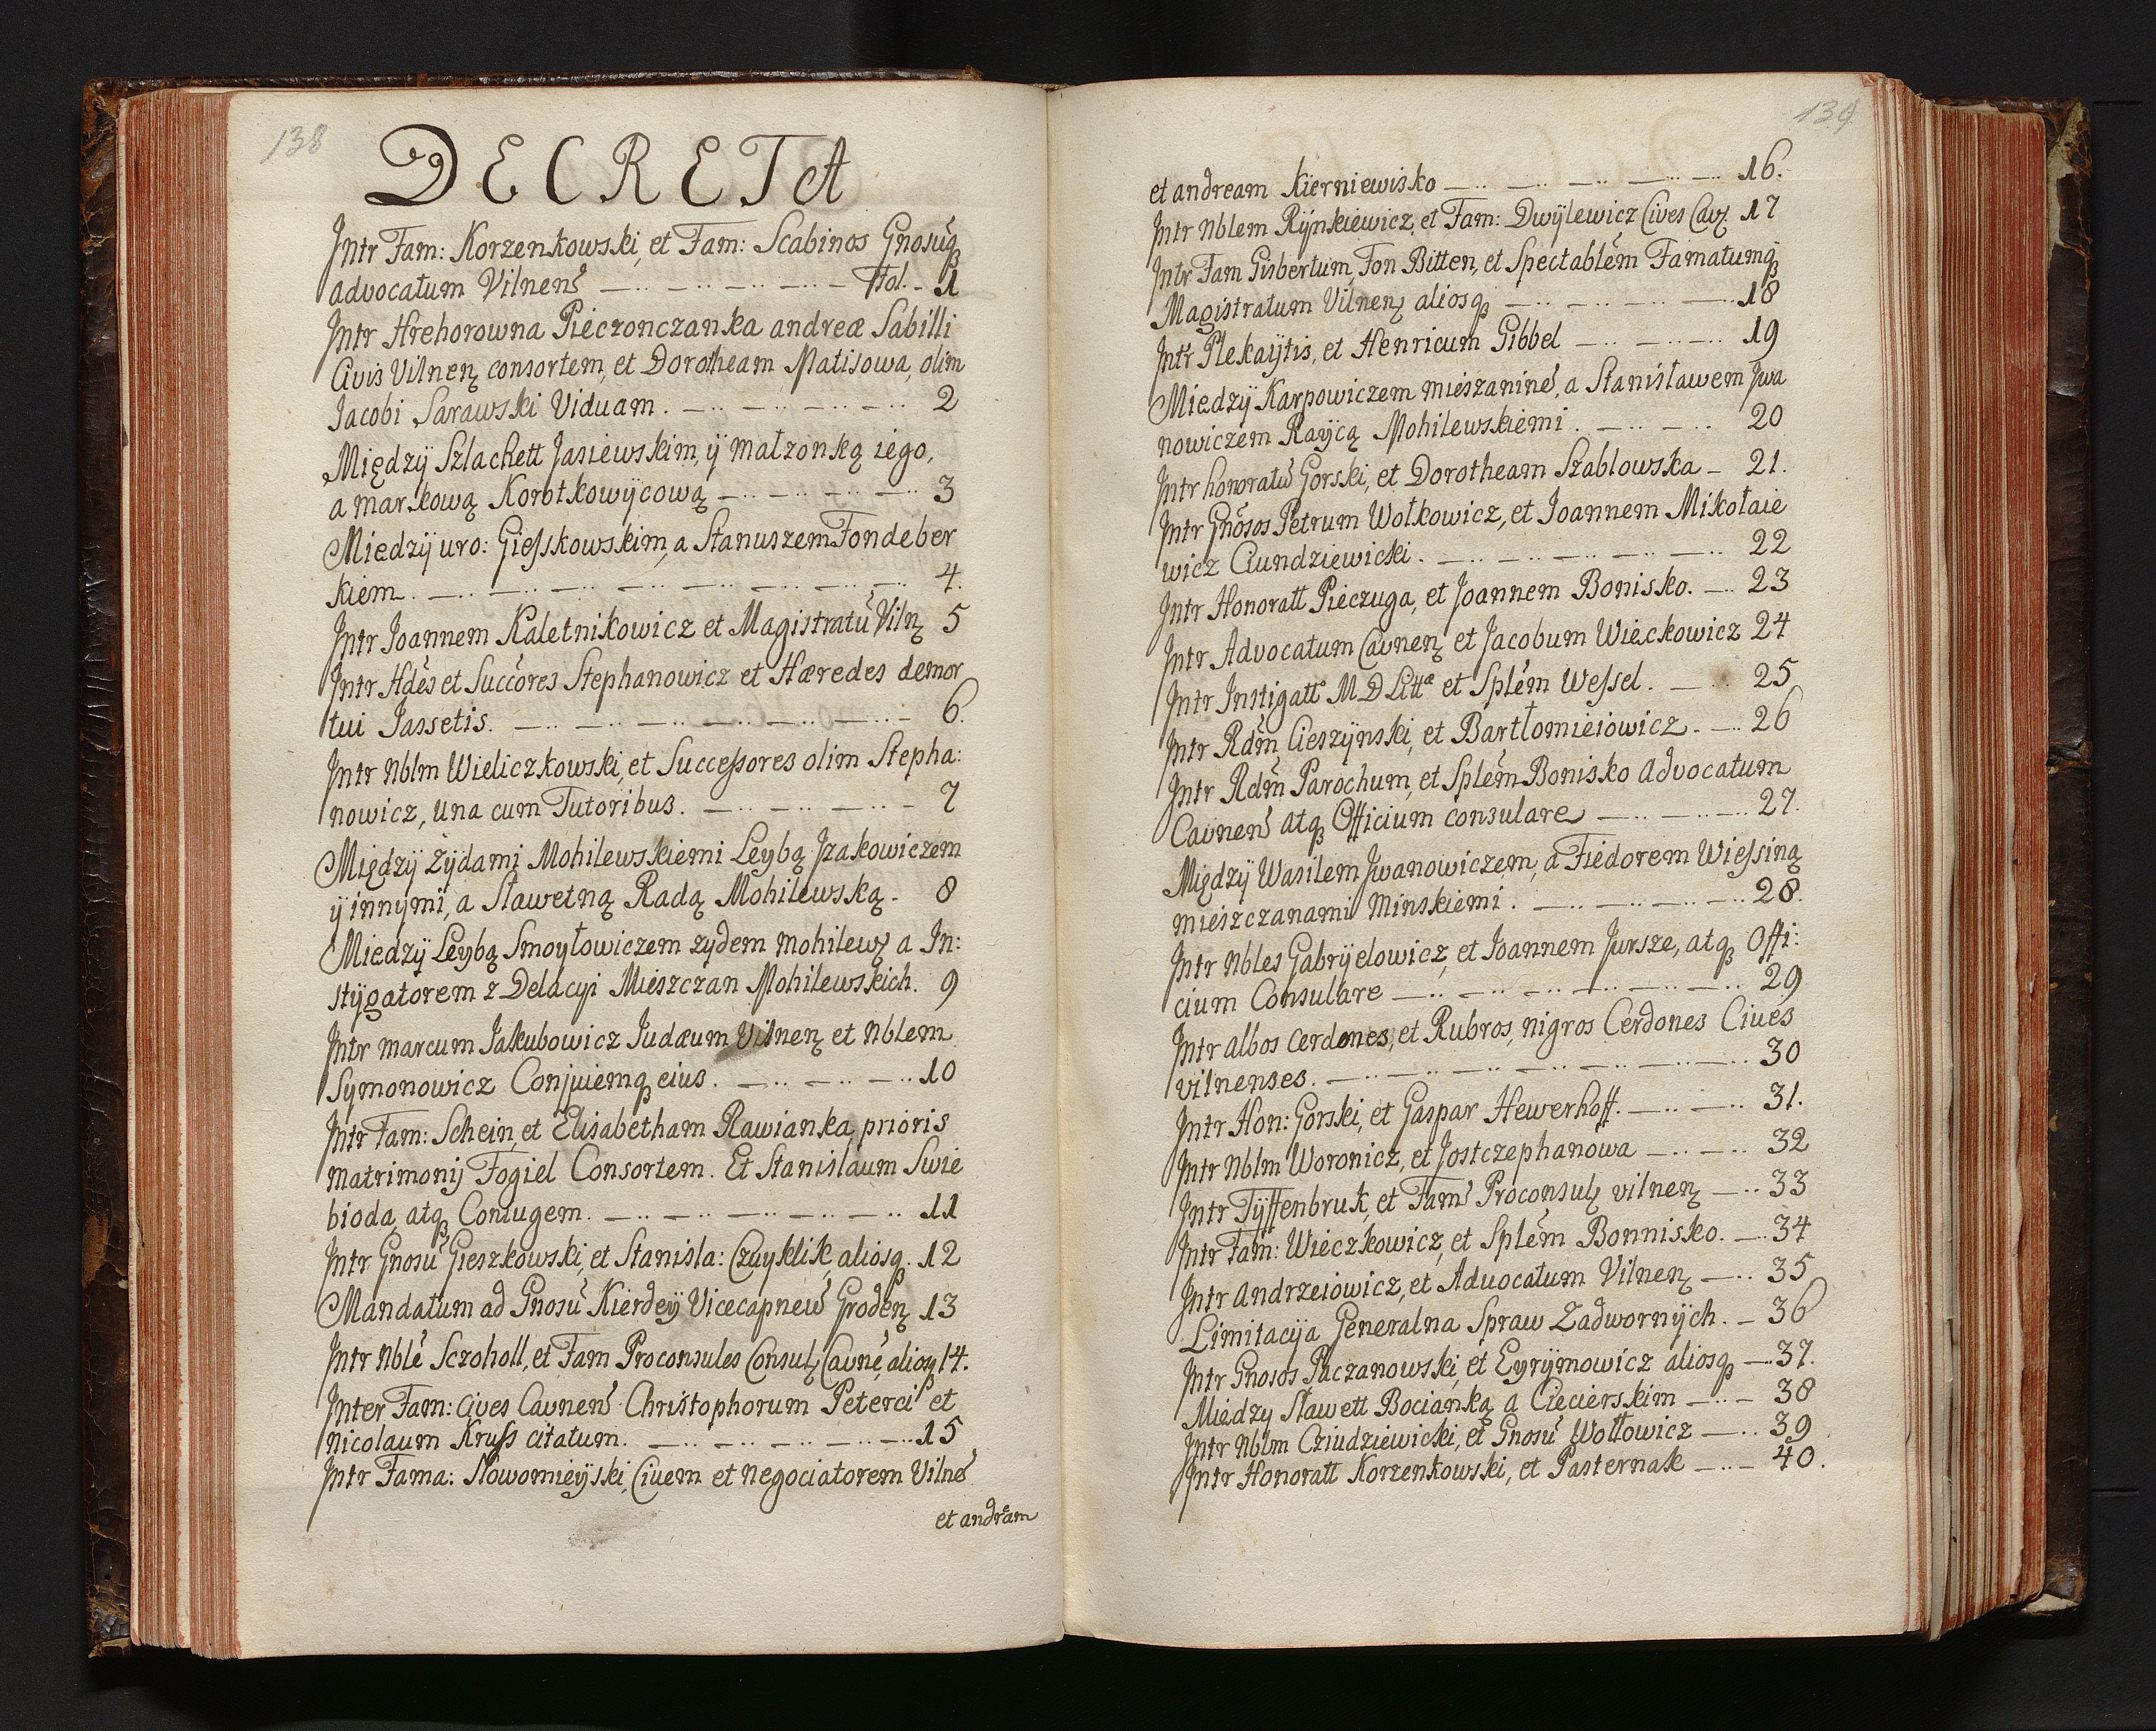 138
DECRETA
Jntr Fam: Korzenkowski, et Fam: Scabinos Gnosuq
advocatum Vilnen Fol. 1
Jntr Hrehorowna Pieczonczanka andreæ Sabilli
Civis Vilnen consortem, et Dorotheam Matisowa, olim
Jacobi Sarawski Viduam. 2
Między Szlachett Jasiewskim, ÿ małzonką iego,
a markową Korotkowÿcową 3
Miedzÿ uro: Giesskowskim, a Stanuszem Fondeber
kiem. 4.
Jntr Joannem Kaletnikowicz et Magistratū Viln 5
Jntr Hdes et Succores Stephanowicz et Hæredes demor
tui Jassetis. 6.
Jntr Nblm Wieliczkowski, et Successores olim Stepha:
nowicz, una cum Tutoribus. 7
Międzÿ Zÿdami Mohilewskiemi Leybą Jzakowiczem
ÿ innymi, a Sławetną Radą Mohilewską. 8
Miedzÿ Leybą Smoyłowiczem zydem mohilew a In:
stÿgatorem z Delacyi Mieszczan Mohilewskich. 9
Jntr marcum Jakubowicz Judæum Vilnen et Nblem
Symonowicz Conjuiemq eius. 10
Jntr Fam: Schein, et Elisabetham Rawianka, prioris
matrimonij Fogiel Consortem. Et Stanislaum Swie
bioda, atq Coniugem. 11
Jntr Gnosū Gieszkowski, et Stanisla: Czuyklik, aliosq. 12
Mandatum ad Gnosū Kierdeÿ Vicecapneū Groden 13
Jntr Nblē Sczoholl, et Fam Proconsules Consul Cavnē, aliosq 14.
Jnter Fam: cives Cavnen Christophorum Peterci et
nicolaum Kruss citatum. 15
Jntr Fama: Nowomieÿski, Civem et negociatorem Vilnē
et andream
139
et andream Kierniewisko 16.
Jntr Nblem Rÿnkiewicz, et Fam: Dwÿlewicz Cives Cav. 17
Jntr Fam Gisbertum, Fon Bitten, et Spectablem Famatumq
Magistratum Vilnen aliosq 18
Jntr Plekaÿtis, et Henricum Gibbel 19
Miedzÿ Karpowiczem mieszaninē, a Stanisławem Jwa
nowiczem Raÿcą Mohilewskiemi. 20
Jntr honoratū Gorski, et Dorotheam Szablowska 21.
Jntr Gnosos Petrum Wołkowicz, et Joannem Mikołaie
wicz Ciundziewicki. 22
Jntr Honoratt Pieczuga, et Joannem Bonisko. 23
Jntr Advocatum Cavnen et Jacobum Wieckowicz 24
Jntr Instigatt M D Littæ et Splem Wessel. 25
Jntr Rdm Cieszÿnski, et Bartłomieiowicz. 26
Jntr Rdm Parochum, et Splem Bonisko advocatum
Cavnen atq Officium consulare 27.
Międzÿ Wasilem Jwanowiczem, a Fiedorem Wiessing
mieszczanami Minskiemi. 28.
Jntr Nbles Gabrÿelowicz, et Joannem Jursze, atq Offi:
cium Consulare 29
Jntr albos cerdones, et Rubros, nigros Cerdones Ciues
vilnenses. 30
Jntr Hon: Gorski, et Gaspar Hewerhoff. 31.
Jntr Nblm Woronicz, et Jostczephanowa 32
Jntr Tÿffenbruk, et Fam Proconsul vilnen 33
Jntr Fam: Wieczkowicz, et Splem Bonnisko. 34
Jntr andrzeiowicz, et Aduocatum Vilnen 35
Limitacÿa Generalna Spraw Zadwornÿch. 36
Jntr Gnosos Paczanowski, et Eyrÿmowicz aliosq 37.
Miedzy Sławett Bocianką a Cieciersk​im 38
Jntr Nblm Cziudziewicki, et Gnosū Wołłowicz 39
Jntr Honoratt Korzenkowski, et Pasternak 40.